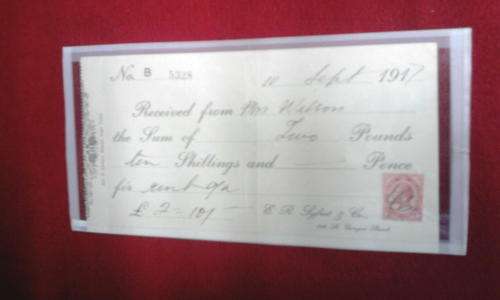 No. B 5328 10 Sept 1917
Received from Mrs Wilson
the Sum of Two Pounds
ten Shillings and Pence
for rent
£ 2 = 10/
E. R. &